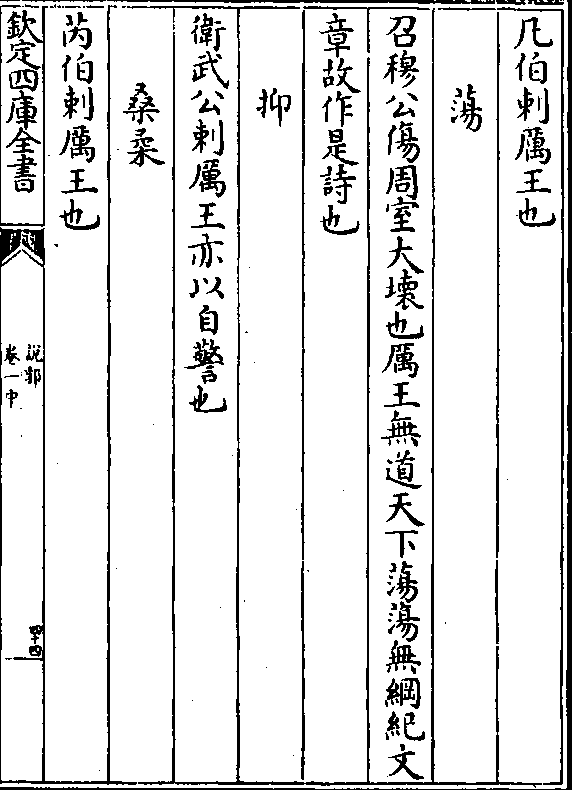 凡伯刺厲王也
蕩
召穆公傷周室大壞也厲王無道天下蕩蕩無綱紀文
章故作是詩也
抑
衛武公刺厲王亦以自警也
桑柔
芮伯刺厲王也
欽定四庫全書
說郛
卷一中
四十四